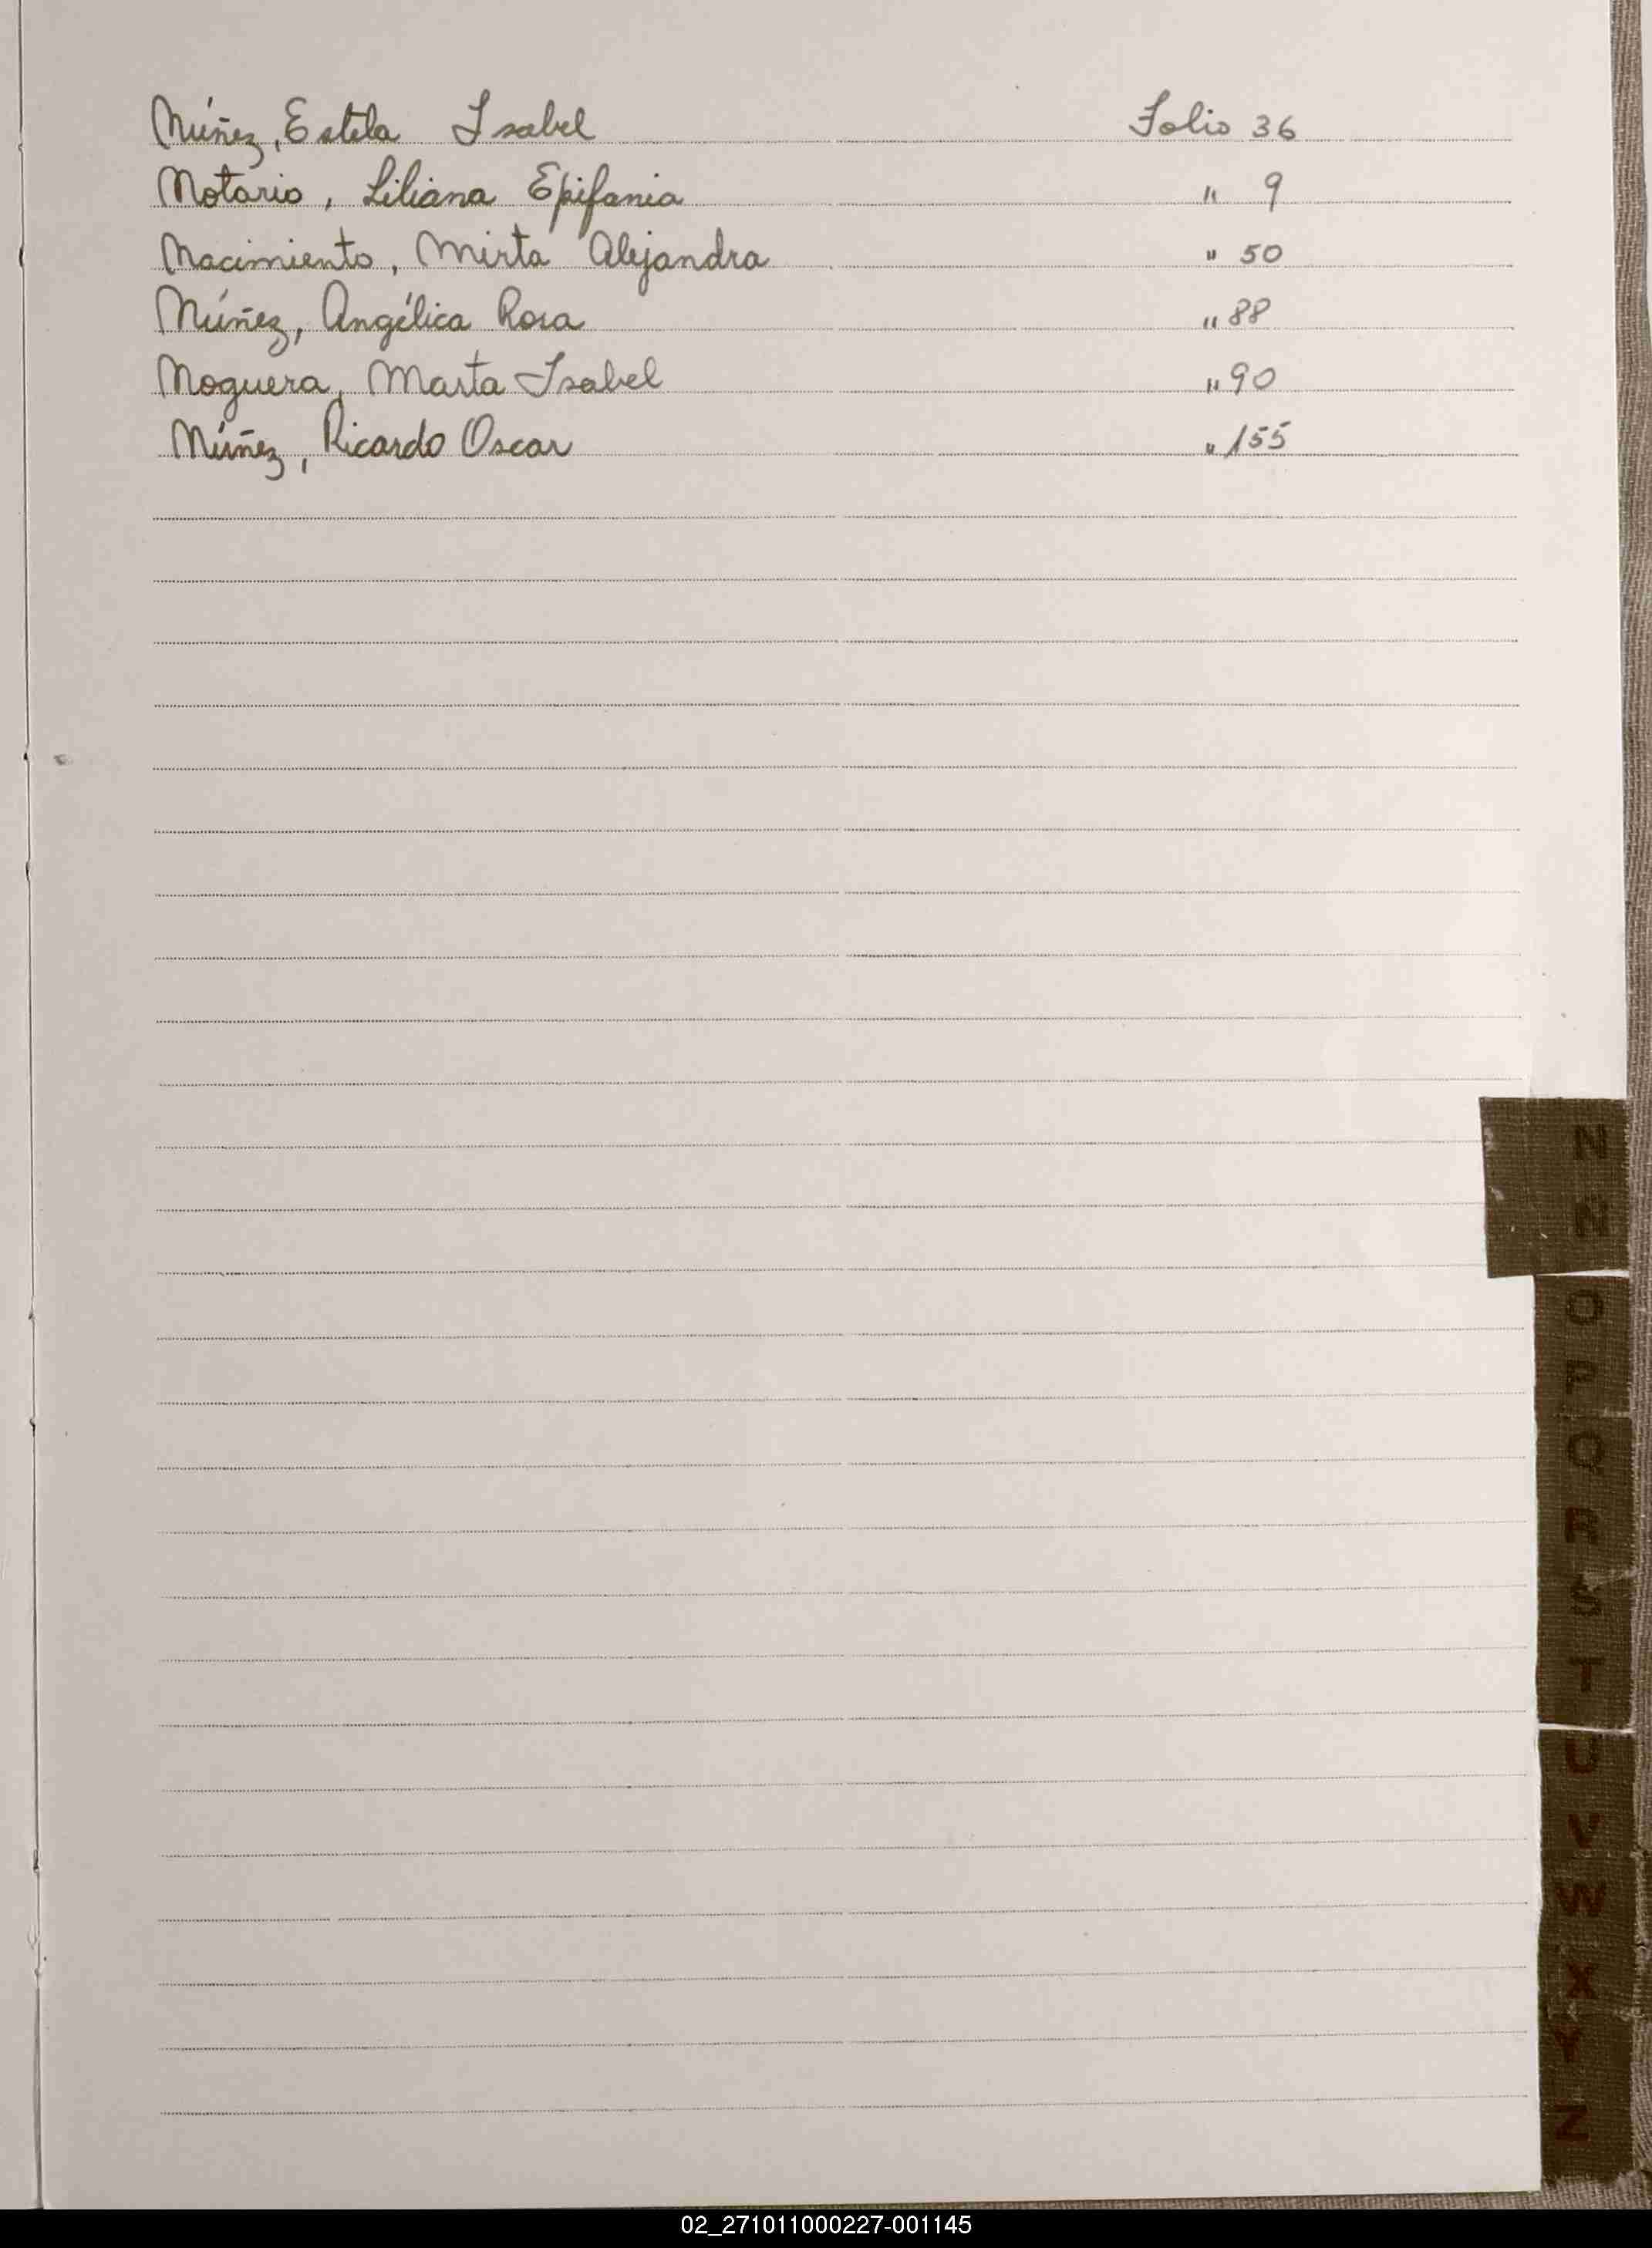 Núñez, Estela Isabel Folio 36
Notario, Liliana Epifania " 9
Nacimiento, Mirta Alejandra " 50
Núñez, Angélica Rosa " 88
Noguera, Marta Isabel " 90
Núñez, Ricardo Oscar " 155
N
Ñ
O
P
Q
R
S
T
U
V
W
X
Y
Z
02_271011000227-001145